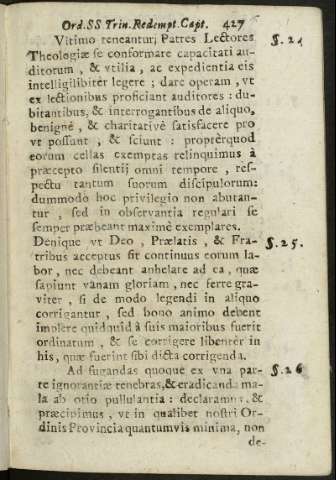 Ord. SS Trin. Redempt. Capt. 427
Vltimo teneantur, Patres Lectores §. 24
Theologiæ se conformare capacitati au-
ditorum , & vtilia , ac expedientia eis
intelligibiliter legere ; dare operam , vt
ex lectionibus proficiant auditores : du-
bitantibus, & interrogantibus de aliquo,
benignè , & charitativè satisfacere pro
vt possunt , & sciunt : proptèrquod
eorum cellas exemptas relinquimus à
præcepto silentij omni tempore , res-
pectu tantum suorum discipulorum:
dummodò hoc privilegio non abutan-
tur , sed in observantia regulari se
semper præbeant maximè exemplares.
Denique vt Deo , Prælatis , & Fra- §. 25.
tribus acceptus sit continuus eorum la-
bor , nec debeant anhelare ad ea , quæ
sapiunt vanam gloriam , nec ferre gra-
vitèr , si de modo legendi in aliquo
corrigantur , sed bono animo debent
implere quidquid à suis maioribus fuerit
ordinatum , & se corrigere libentèr in
his, quæ fuerint sibi dicta corrigenda.
Ad fugandas quoque ex vna par- §. 26
te ignorantiæ tenebras, & eradicanda ma-
la ab otio pullulantia : declaramus, &
præcipimus , vt in qualibet nostri Or-
dinis Provincia quantumvis minima, non
de-